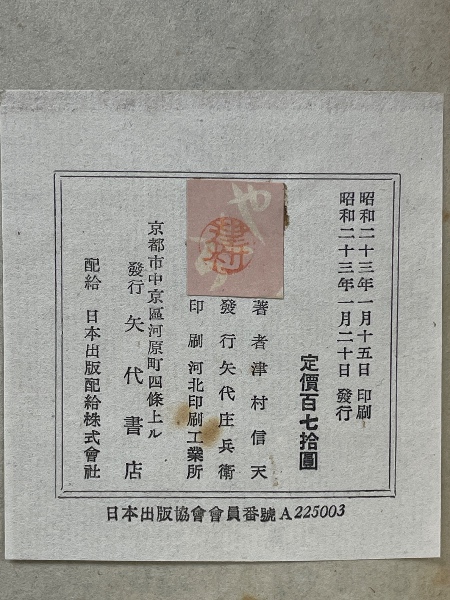 昭和二十三年一月十五日 印刷
昭和二十三年一月二十日 發行
定價百七拾圓
著者 津村信天
發行 矢代庄兵衛
印刷 河北印刷工業所
京都市中京區河原町四條上ル
發行 矢代書店
配給 日本出版配給株式會社
日本出版協會會員番號 A225003
や